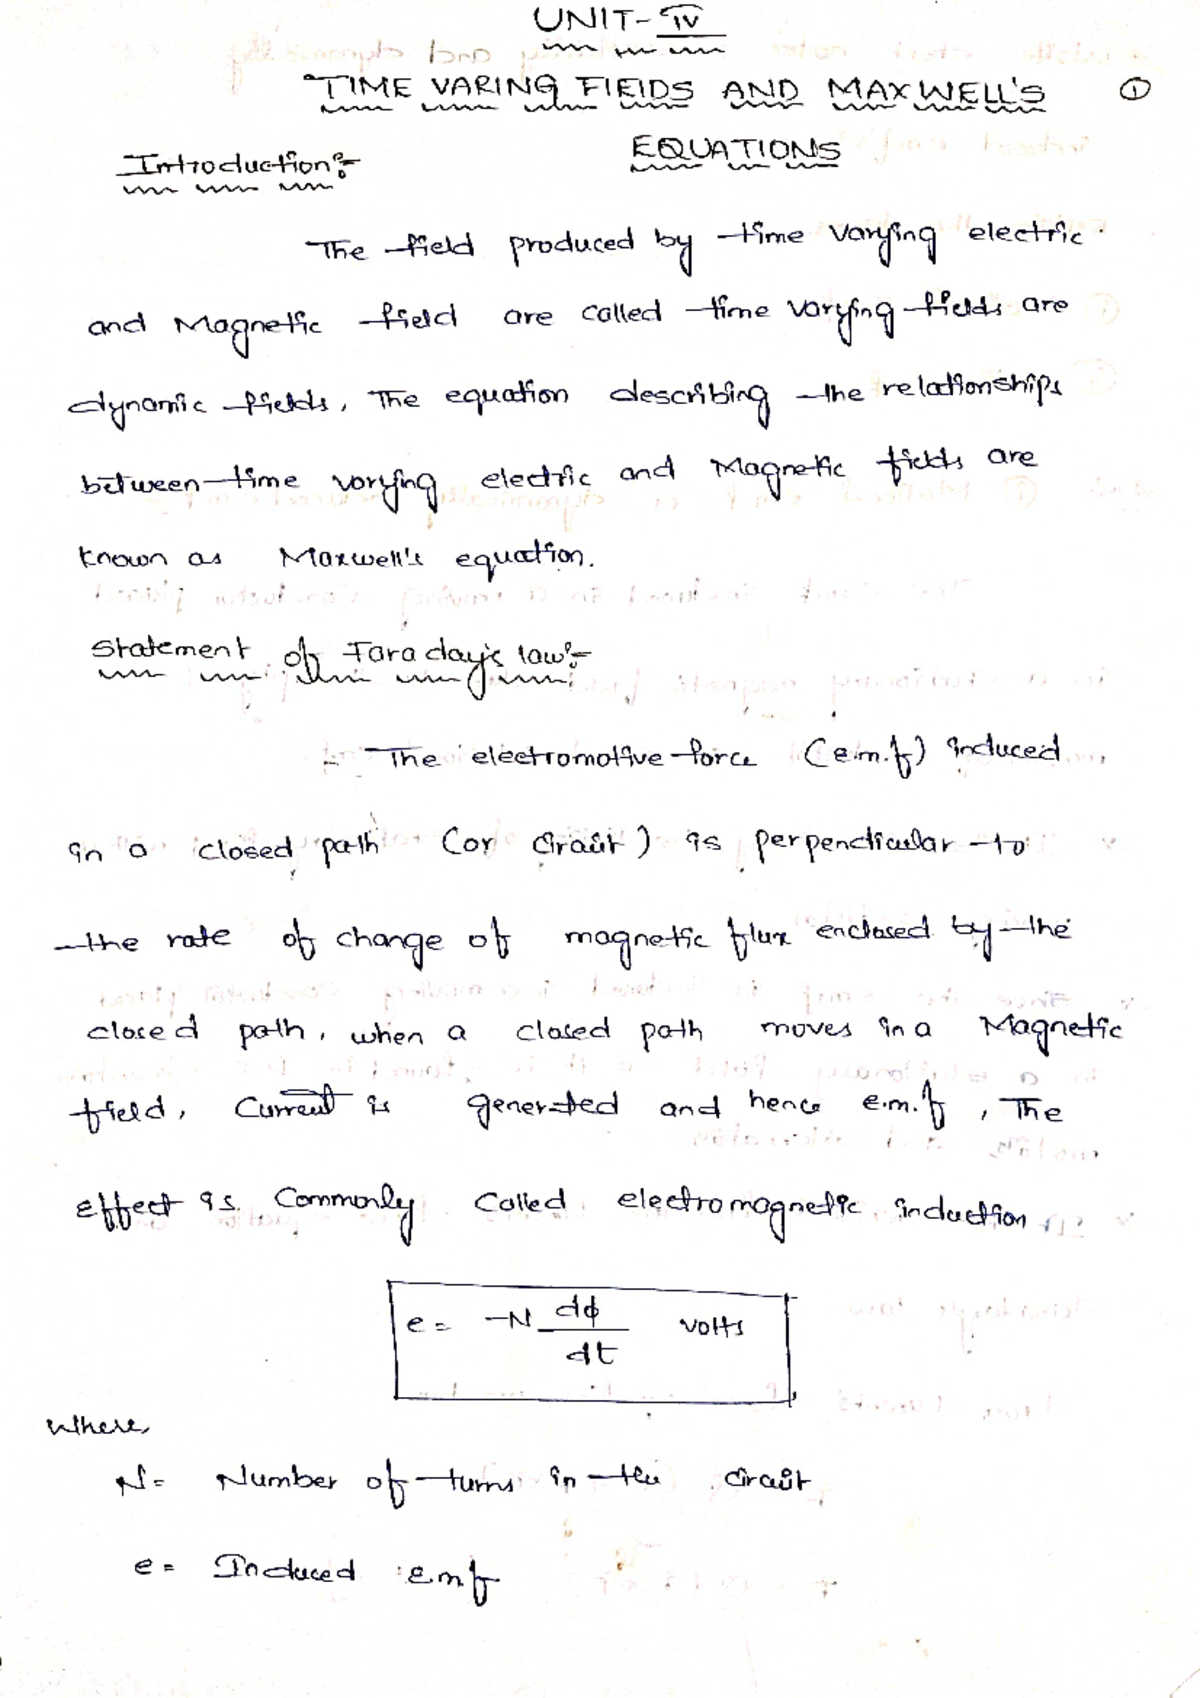 UNIT-IV
TIME VARING FIELDS AND MAXWELL'S ①
EQUATIONS
Introduction:-
The field produced by time varying electric
and Magnetic field are called time varying fields are
dynamic fields, The equation describing the relationships
between time varying electric and Magnetic fields are
known as Maxwell's equation.
Statement of Faraday's law:-
The electromotive force (e.m.f) induced
in a closed path (or circuit) is perpendicular to
the rate of change of magnetic flux enclosed by the
closed path, when a closed path moves in a Magnetic
field, Current is generated and hence e.m.f, The
effect is Commonly Called electromagnetic induction
e = -N dφ/dt volts
Where,
N = Number of turns in the circuit
e = Induced Emf